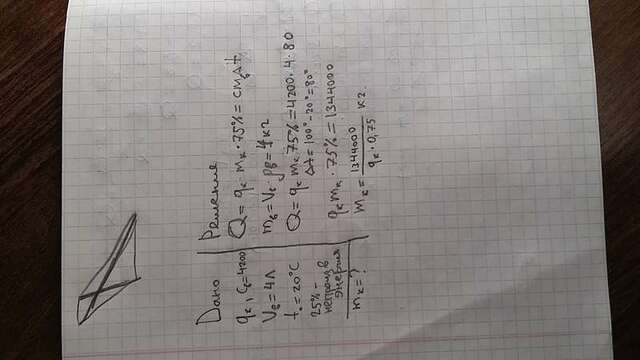 Дано
qк, Cв=4200
Vв=4л
t₀=20°C
25%-
непроизв
энергия
mк=?
Решение
Q=qк mк·75%=cmвΔt
mв=Vв·ρв=4кг
Q=qк mк 75%=4200·4·80
Δt=100°-20°=80°
qкmк·75%=1344000
mк=1344000/qк·0,75 кг.